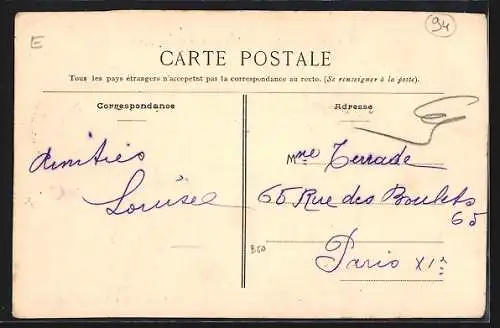 E
94
CARTE POSTALE
Tous les pays étrangers n'acceptent pas la correspondance au recto. (Se renseigner à la poste).
Correspondance
Adresse
Amitiés
Louise
Mme Terrade
65 Rue des Boulets
65
Paris XIe
B50